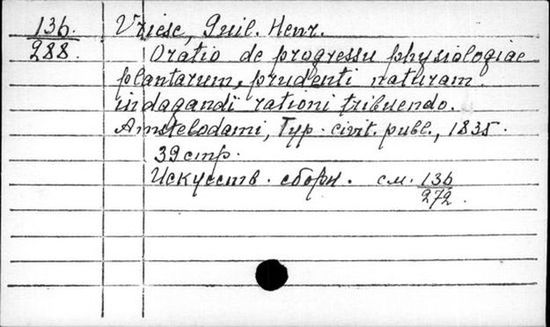 136.
288.
Vriese, Guil. Henr.
Oratio de progressu physiologiae
plantarum, prudenti naturam
indagandi rationi tribuendo.
Amstelodami, Typ. civit. publ., 1835.
39 стр.
Искусств. сборн. см. 136
272.